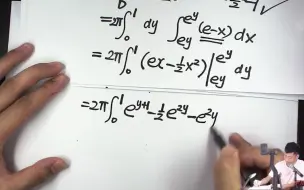 =2π∫₀¹ dy ∫_{ey}^{e^y} (e-x) dx
=2π∫₀¹ (ex-½x²)|_{ey}^{e^y} dy
=2π∫₀¹ e^{y+1}-½e^{2y}-e²y